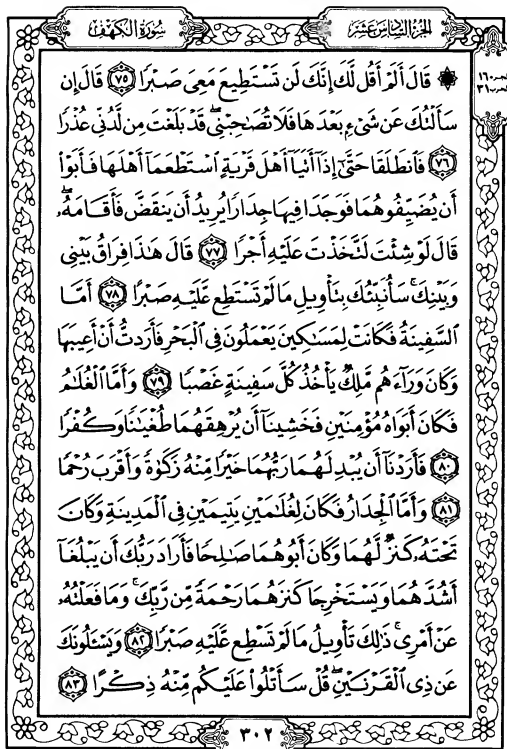 الجزء السادس عشر
سورة الكهف
۞ قَالَ أَلَمْ أَقُل لَّكَ إِنَّكَ لَن تَسْتَطِيعَ مَعِىَ صَبْرًا ٧٥ قَالَ إِن
سَأَلْتُكَ عَن شَىْءٍۭ بَعْدَهَا فَلَا تُصَـٰحِبْنِى ۖ قَدْ بَلَغْتَ مِن لَّدُنِّى عُذْرًا
٧٦ فَٱنطَلَقَا حَتَّىٰٓ إِذَآ أَتَيَآ أَهْلَ قَرْيَةٍ ٱسْتَطْعَمَآ أَهْلَهَا فَأَبَوْا۟
أَن يُضَيِّفُوهُمَا فَوَجَدَا فِيهَا جِدَارًا يُرِيدُ أَن يَنقَضَّ فَأَقَامَهُۥ ۖ
قَالَ لَوْ شِئْتَ لَتَّخَذْتَ عَلَيْهِ أَجْرًا ٧٧ قَالَ هَـٰذَا فِرَاقُ بَيْنِى
وَبَيْنِكَ ۚ سَأُنَبِّئُكَ بِتَأْوِيلِ مَا لَمْ تَسْتَطِع عَّلَيْهِ صَبْرًا ٧٨ أَمَّا
ٱلسَّفِينَةُ فَكَانَتْ لِمَسَـٰكِينَ يَعْمَلُونَ فِى ٱلْبَحْرِ فَأَرَدتُّ أَنْ أَعِيبَهَا
وَكَانَ وَرَآءَهُم مَّلِكٌ يَأْخُذُ كُلَّ سَفِينَةٍ غَصْبًا ٧٩ وَأَمَّا ٱلْغُلَـٰمُ
فَكَانَ أَبَوَاهُ مُؤْمِنَيْنِ فَخَشِينَآ أَن يُرْهِقَهُمَا طُغْيَـٰنًا وَكُفْرًا
٨٠ فَأَرَدْنَآ أَن يُبْدِلَهُمَا رَبُّهُمَا خَيْرًا مِّنْهُ زَكَوٰةً وَأَقْرَبَ رُحْمًا
٨١ وَأَمَّا ٱلْجِدَارُ فَكَانَ لِغُلَـٰمَيْنِ يَتِيمَيْنِ فِى ٱلْمَدِينَةِ وَكَانَ
تَحْتَهُۥ كَنزٌ لَّهُمَا وَكَانَ أَبُوهُمَا صَـٰلِحًا فَأَرَادَ رَبُّكَ أَن يَبْلُغَآ
أَشُدَّهُمَا وَيَسْتَخْرِجَا كَنزَهُمَا رَحْمَةً مِّن رَّبِّكَ ۚ وَمَا فَعَلْتُهُۥ
عَنْ أَمْرِى ۚ ذَٰلِكَ تَأْوِيلُ مَا لَمْ تَسْطِع عَّلَيْهِ صَبْرًا ٨٢ وَيَسْـَٔلُونَكَ
عَن ذِى ٱلْقَرْنَيْنِ ۖ قُلْ سَأَتْلُوا۟ عَلَيْكُم مِّنْهُ ذِكْرًا ٨٣
الجزء ١٦
الحزب ٣١
٣٠٢